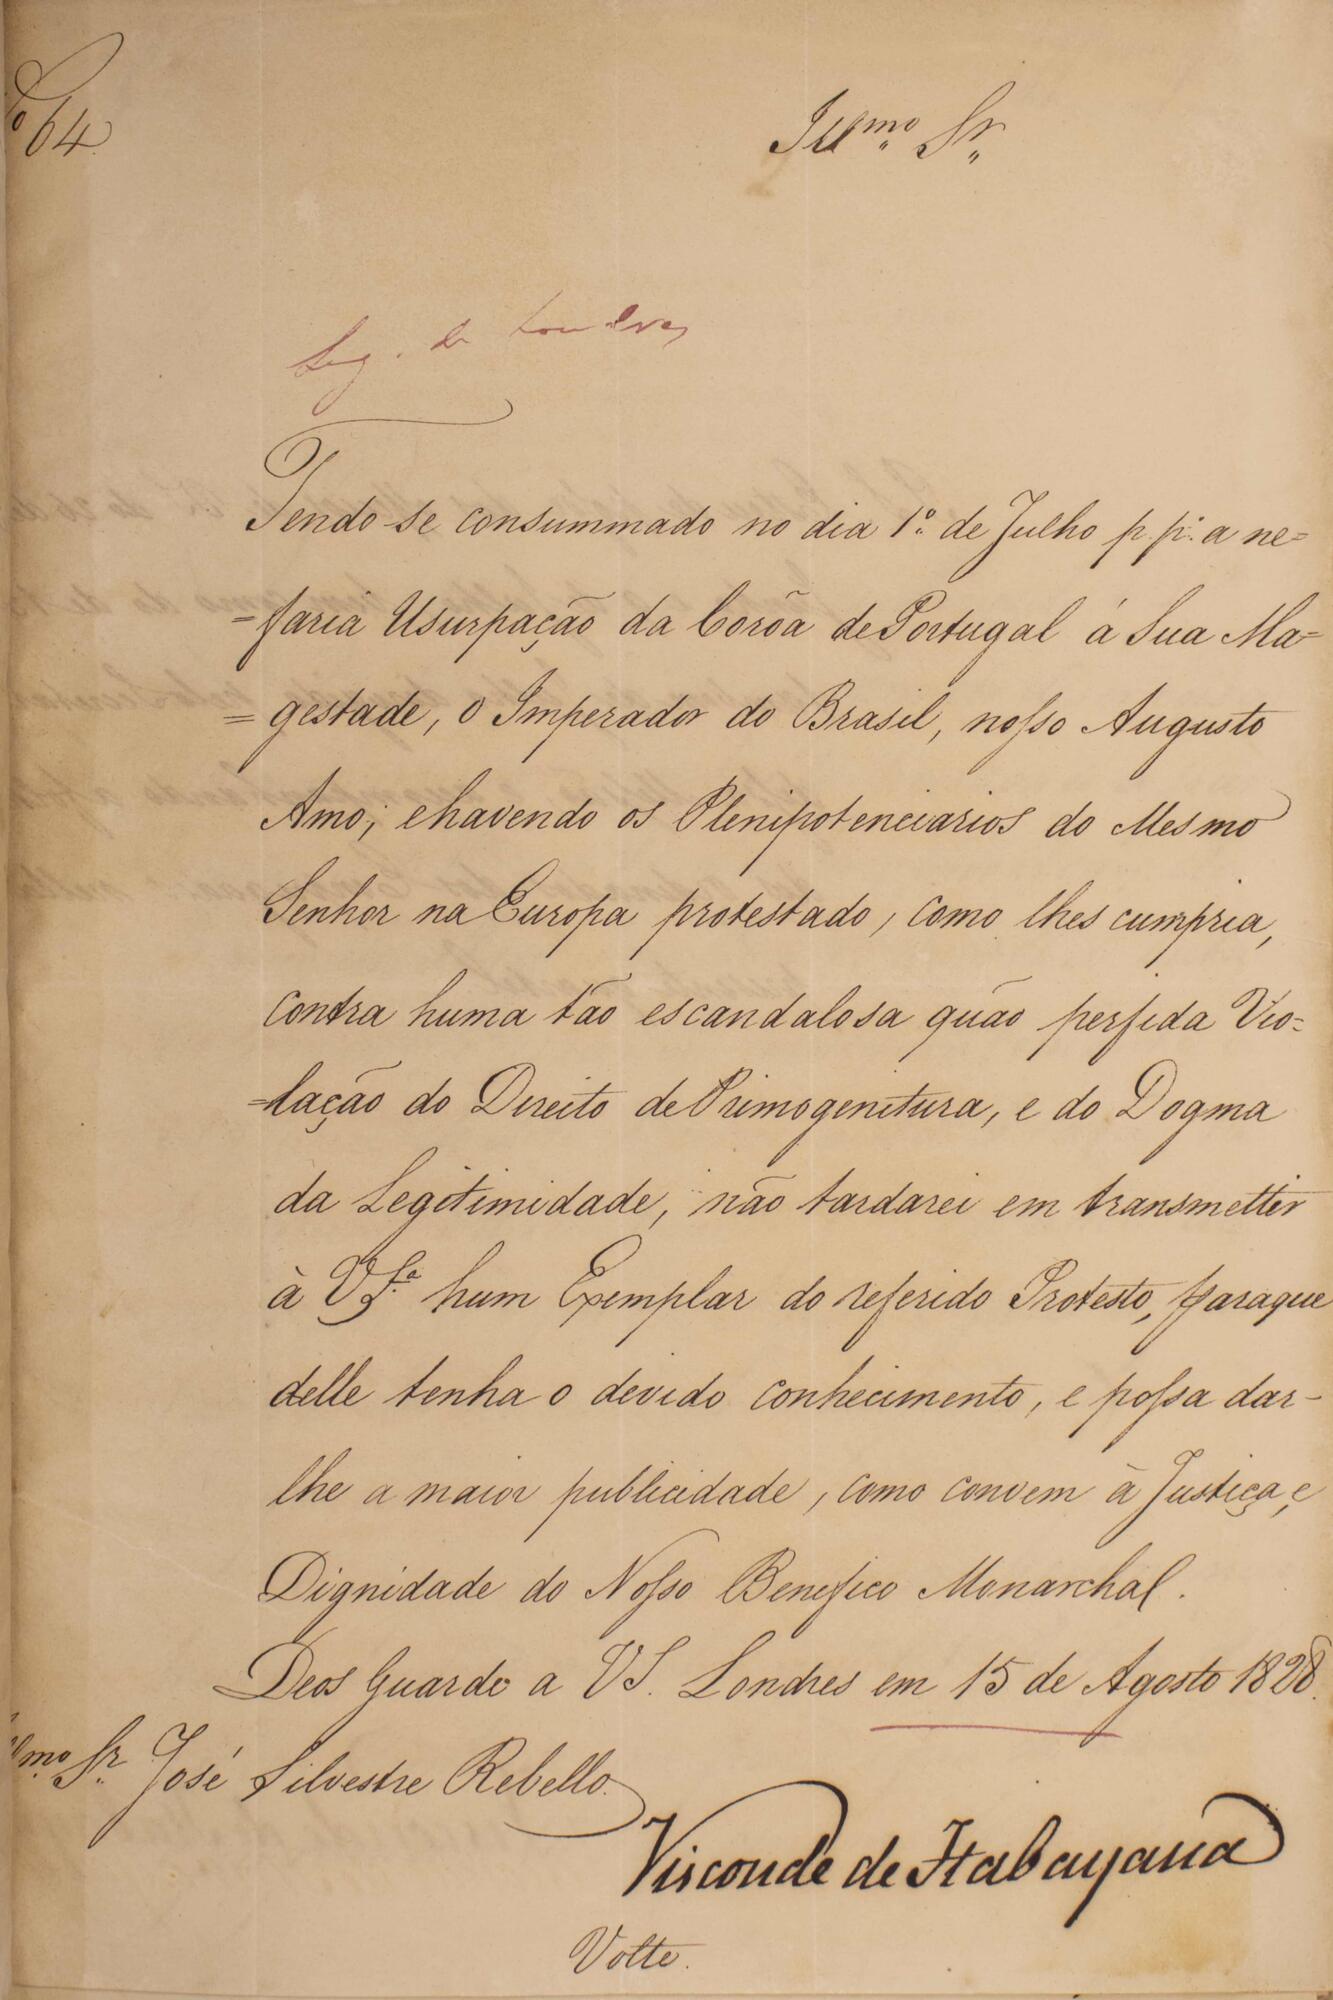 Nº 64
Illmo. Sr.
Leg. de Londres
Tendo-se consummado no dia 1º de Julho p. pº. a ne=
=faria Usurpação da Corõa de Portugal á Sua Ma=
=gestade, o Imperador do Brasil, nosso Augusto
Amo; e havendo os Plenipotenciarios do Mesmo
Senhor na Europa protestado, como lhes cumpria,
contra huma tão escandalosa quão perfida Vio=
=lação do Direito de Primogenitura, e do Dogma
da Legitimidade, não tardarei em transmetter
à VSª hum Exemplar do referido Protesto, paraque
delle tenha o devido conhecimento, e possa dar-
lhe a maior publicidade, como convem à Justiça, e
Dignidade do Nosso Benefico Monarchal.
Deos Guarde a VS. Londres em 15 de Agosto 1828.
Illmo. Sr. José Silvestre Rebello.
Visconde de Itabayana
Volte.